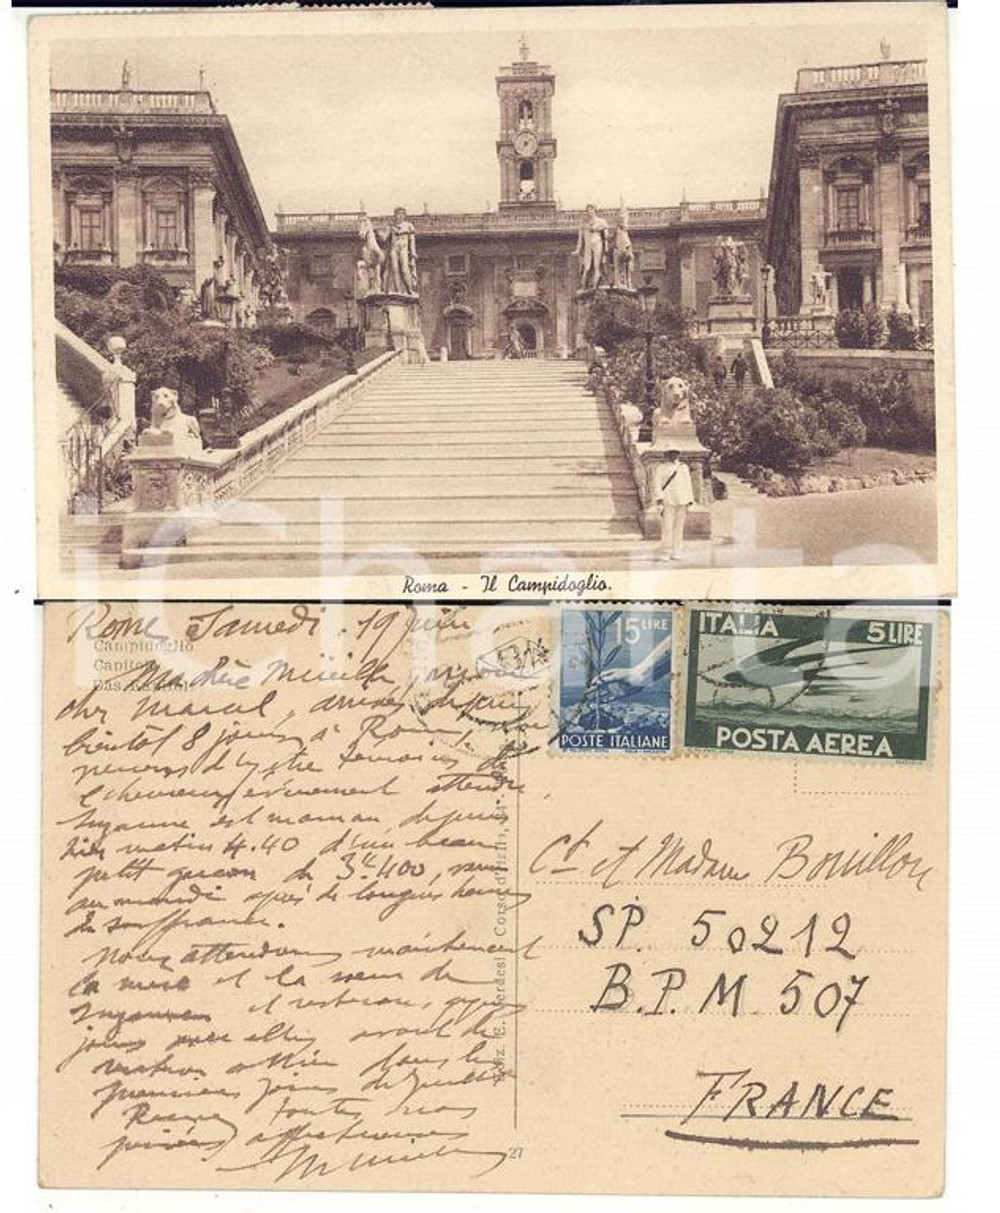 Roma - Il Campidoglio.
iCharta
Rome Samedi 19 Juin
Campidoglio
Capitole
Das Kapitol
Ma chère Mireille, mon
cher Marcel, arrivés depuis
bientôt 8 jours à Rome, nous
venons d'être témoins de
l'heureux évènement attendu
Suzanne est maman depuis
hier matin 4.40 d'un beau
petit garçon de 3k400, venu
au monde après de longues heures
de souffrance.
Nous attendons maintenant
la mère et la soeur de
Suzanne et resterons quelques
jours avec elles avant de
rentrer dans les
premiers jours de Juillet
Recevez toutes nos
pensées affectueuses
15 LIRE
POSTE ITALIANE
ITALIA 5 LIRE
POSTA AEREA
Ediz. E. Verdesi Corso d'Italia, 34 - Roma
Ct et Madame Bouillon
SP. 50212
B.P.M 507
FRANCE
27